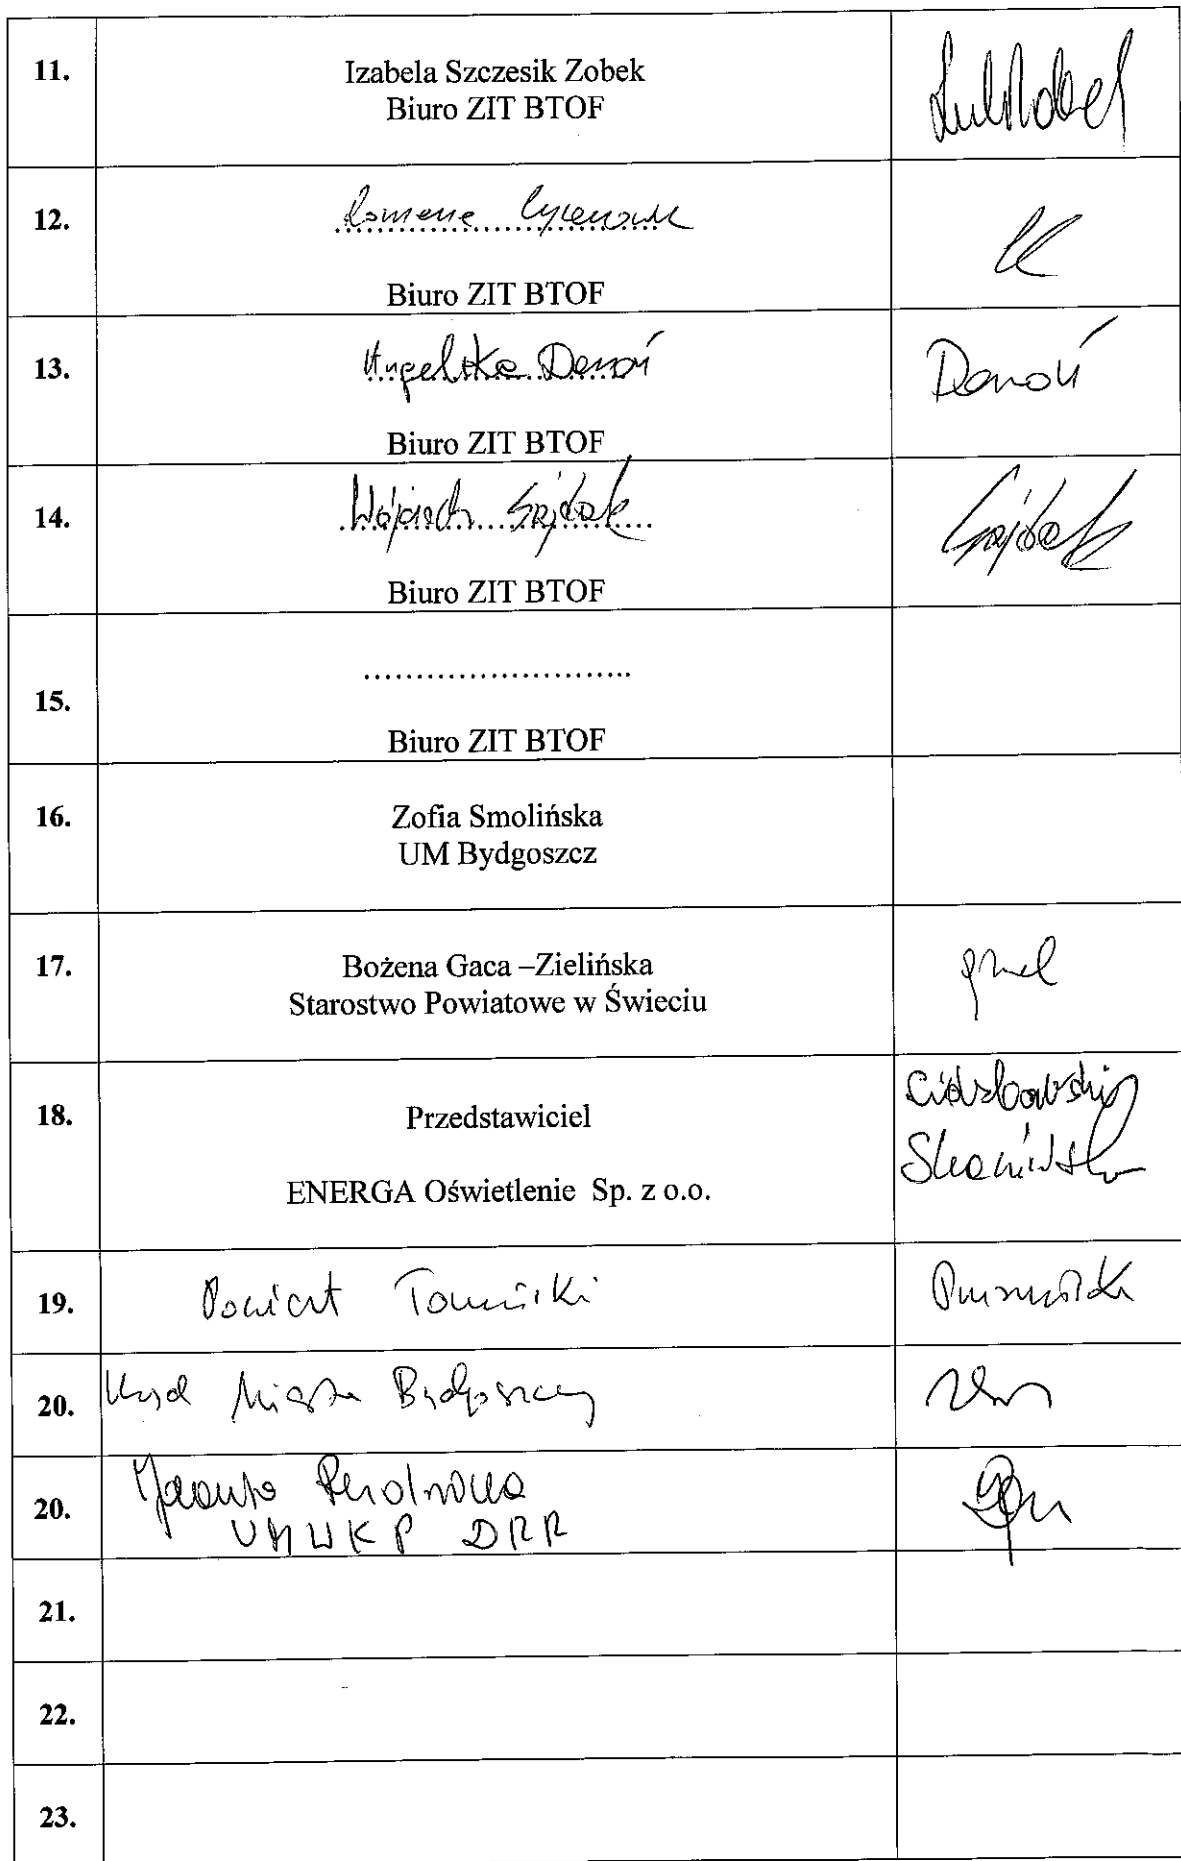 11.
Izabela Szczesik Zobek
Biuro ZIT BTOF
12.
Biuro ZIT BTOF
13.
Angelika Danoń
Danoń
Biuro ZIT BTOF
14.
Wojciech Gajdak
Gajdak
Biuro ZIT BTOF
...........................
15.
Biuro ZIT BTOF
16.
Zofia Smolińska
UM Bydgoszcz
17.
Bożena Gaca –Zielińska
Starostwo Powiatowe w Świeciu
18.
Przedstawiciel
ENERGA Oświetlenie Sp. z o.o.
19.
Powiat Toruński
20.
Urząd Miasta Bydgoszczy
20.
UMWKP DRR
21.
22.
23.